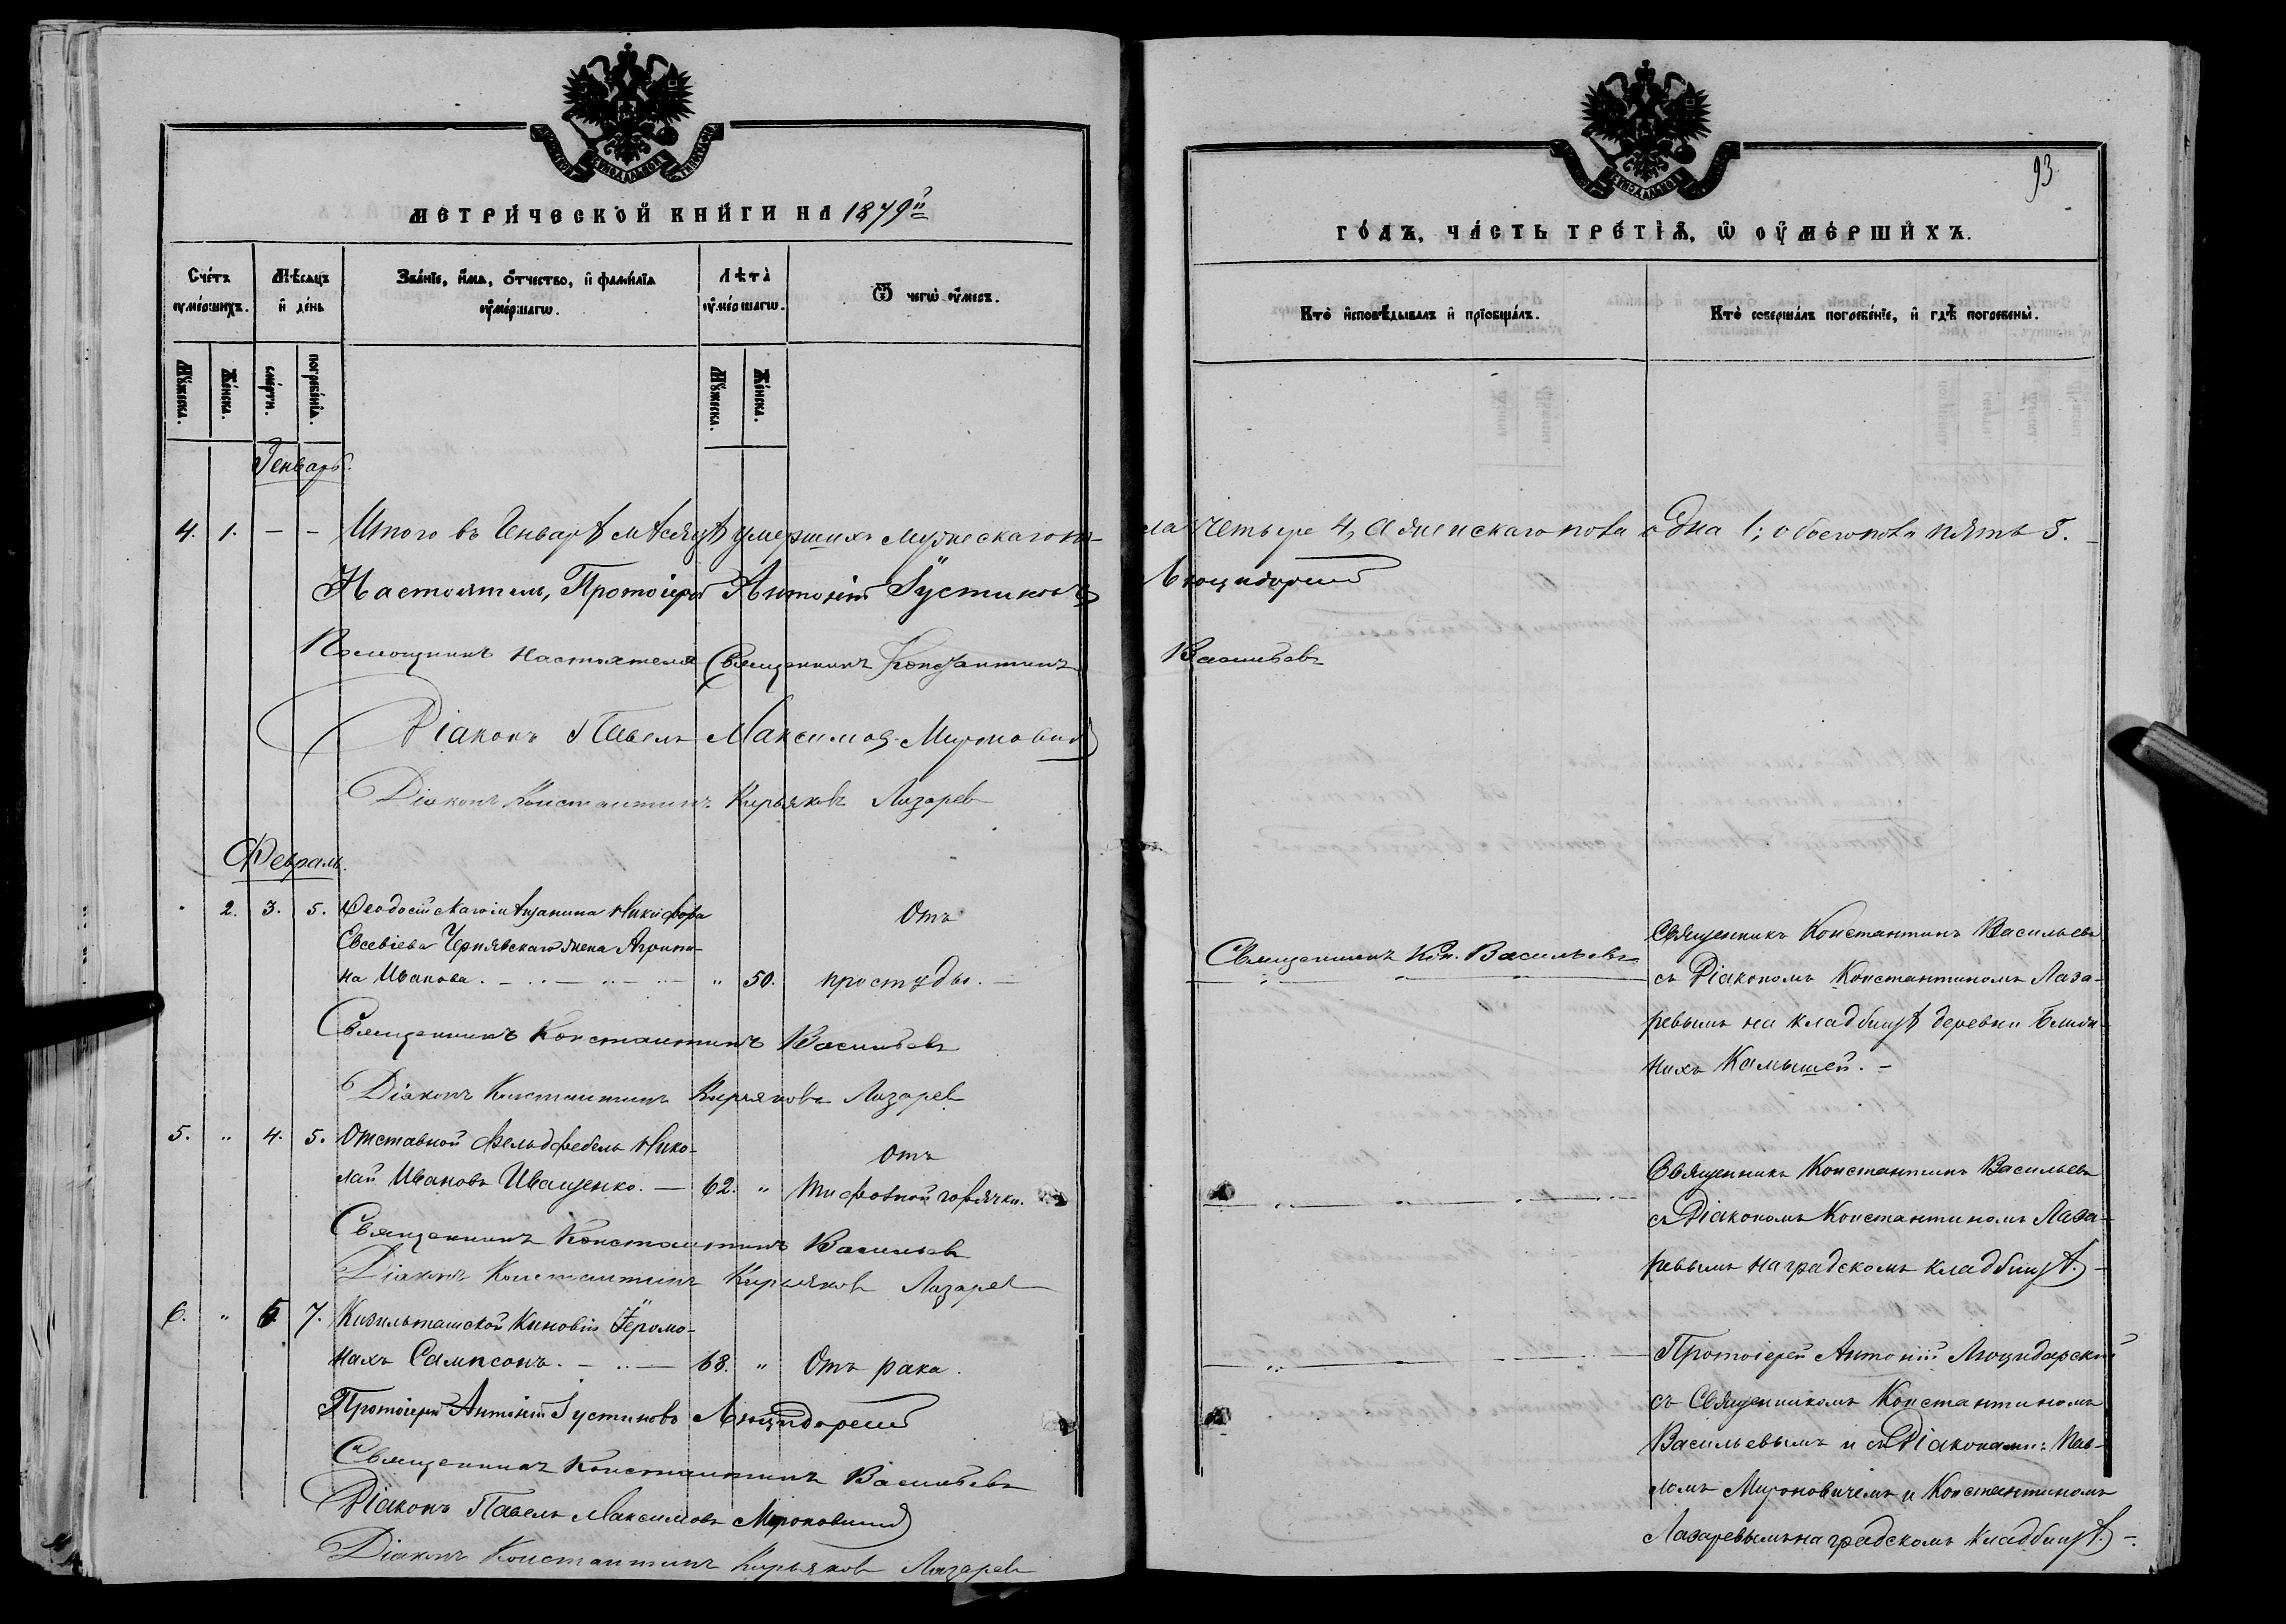 МЕТРИЧЕСКОЙ КНИГИ НА 1879й
Счетъ умершихъ.
Мѣсяцъ и день
Званіе, имя, отчество, и фамилія умершагѡ.
Лѣта умершагѡ.
Ѿ чегѡ умеръ.
Мужеска.
Женска.
смерти.
погребенія.
Мужеска.
Женска.
Генварь.
4. 1. – – Итого въ Генварѣ мѣсяцѣ умершихъ мужескаго по-
Настоятель, Протоіерей Антоній Іустиновъ
Помощникъ Настоятеля Священникъ Константинъ
Діаконъ Павелъ Максимов Миронович
Діаконъ Константинъ Кирьяковъ Лазарев
Февраль.
" 2. 3. 5. Ѳеодосійскаго мѣщанина Никифора
Евсевіева Чернявскаго жена Агрипи-
на Иванова. " 50. Отъ простуды.
Священникъ Константинъ Васильевъ
Діаконъ Константинъ Кирьяковъ Лазарев
5. " 4. 5. Отставной Фельдфебель Нико-
лай Ивановъ Иващенко. – 62. " Отъ тифозной горячки.
Священникъ Константинъ Васильевъ
Діаконъ Константинъ Кирьяков Лазарев
6. " 5. 7. Кизильташской Киновіи Іеромо-
нахъ Сампсонъ. 68. " Отъ рака.
Протоіерей Антоній Іустиновъ Люцидарскій
Священникъ Константинъ Васильевъ
Діаконъ Павелъ Максимовъ Миронович
Діаконъ Константинъ Кирьяков Лазарев
93
ГОДЪ, ЧАСТЬ ТРЕТІЯ, Ѡ УМЕРШИХЪ.
Кто исповѣдывалъ и пріобщалъ.
Кто совершалъ погребеніе, и гдѣ погребены.
ла четыре 4, а женскаго пола одна 1; обоего пола пять 5.
Люцидарскій
Васильевъ
Священникъ Кон. Васильевъ
Священникъ Константинъ Васильевъ
съ Діакономъ Константиномъ Лаза-
ревымъ на кладбищѣ деревни Ближ-
нихъ Камышей. –
Священникъ Константинъ Васильевъ
съ Діакономъ Константиномъ Лаза-
ревымъ на градскомъ кладбищѣ. –
Протоіерей Антоній Люцидарскій
съ Священникомъ Константиномъ
Васильевымъ и съ Діаконами: Пав-
ломъ Мироновичемъ и Константиномъ
Лазаревымъ на градскомъ кладбищѣ. –